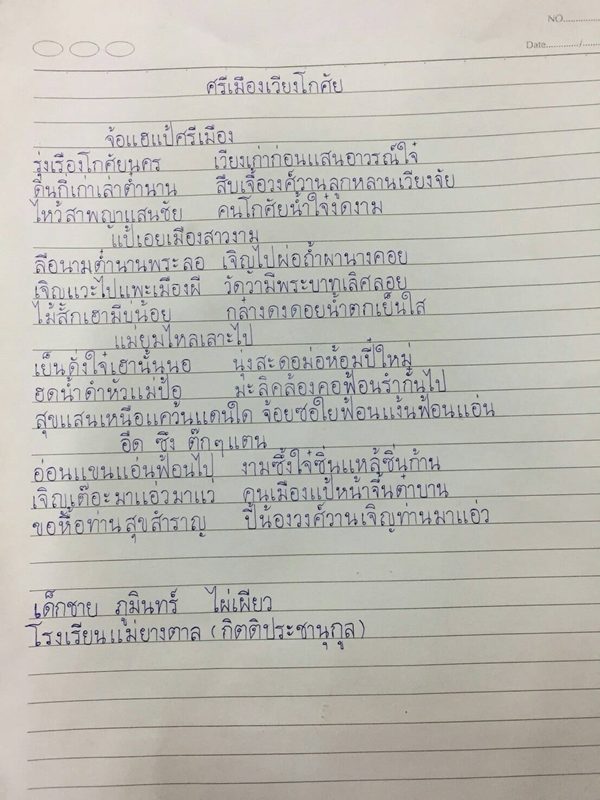 NO.............
Date............/.....
ศรีเมืองเวียงโกศัย
จ้อแฮแป้ศรีเมือง
รุ่งเรืองโกศัยนคร เวียงเก่าก่อนแสนอาวรณ์ใจ๋
ดินกี่เก่าเล่าตำนาน สืบเจื้อวงศ์วานลูกหลานเวียงจัย
ไหว้สาพญาแสนชัย คนโกศัยน้ำใจ๋งดงาม
แป้เอยเมืองสาวงาม
ลือนามตำนานพระลอ เจิญไปผ่อถ้ำผานางคอย
เจิญแวะไปแพะเมืองผี วัดว้ามีพระบาทเลิศลอย
ไม้สักเฮามีบ่น้อย กล๋างดงดอยน้ำตกเย็นใส
แม่ยมไหลเลาะไป
เย็นดั่งใจ๋เฮานั้นนอ นุ่งสะดอม่อห้อมปี๋ใหม่
ฮดน้ำดำหัวแม่ป้อ มะลิคล้องคอฟ้อนรำกั๋นไป
สุขแสนเหนือแคว้นแดนใด จ้อยซอใยฟ้อนแง้นฟ้อนแอ่น
ฮีด ซึง ต๊กๆแตน
อ่อนแขนแอ่นฟ้อนไป งามซึ้งใจ๋ซิ่นแหล้ซิ่นก้าน
เจิญเต๊อะมาแอ่วมาแว คนเมืองแป้หน้าจื้นต๋าบาน
ขอหื้อท่านสุขสำราญ ปี้น้องวงศ์วานเจิญท่านมาแอ่ว
เด็กชาย ภูมินทร์ ไผ่เผียว
โรงเรียนแม่ยางตาล (กิตติประชานุกูล)